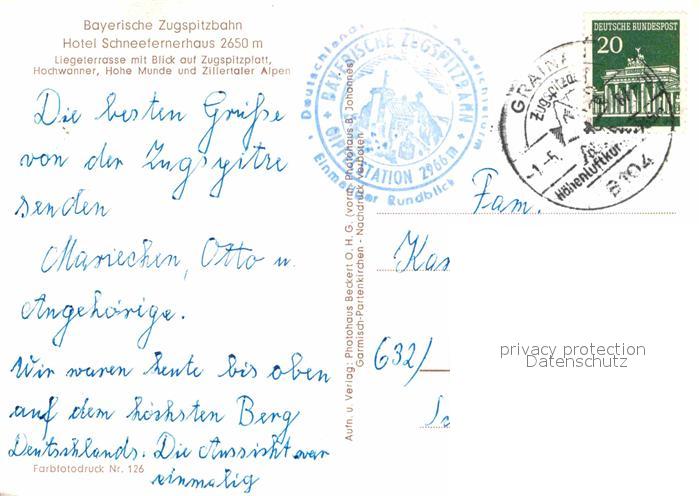 Bayerische Zugspitzbahn
Hotel Schneefernerhaus 2650 m
Liegeterrasse mit Blick auf Zugspitzplatt,
Hochwanner, Hohe Munde und Zillertaler Alpen
Die besten Grüße
von der Zugspitze
senden
Mariechen, Otto u.
Angehörige.
Wir waren heute bis oben
auf dem höchsten Berg
Deutschlands. Die Aussicht war
einmalig
Farbfotodruck Nr. 126
Aufn. u. Verlag: Photohaus Beckert O.H.G. (vorm. Photohaus B. Johannes)
Garmisch-Partenkirchen - Nachdruck verboten
Deutschlands
BAYERISCHE ZUGSPITZBAHN
GIPFELSTATION 2966 m
Einmaliger Rundblick
DEUTSCHE BUNDESPOST
20
GRAINAU
Höhenluftkur
8104
Fam.
Kas
632/
privacy protection
Datenschutz